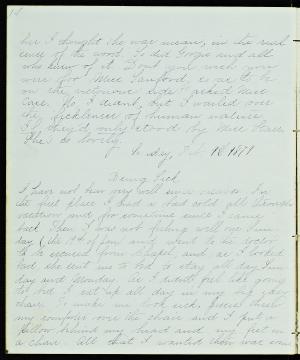 her I thought she was mean, in the real
sense of the word. So did Georgie and all
who knew of it. Don't you wish you
were for Miss Sanford, so as to be
on the victorious side? asked Miss
Case. No, I don't, but I wailed over
the fickleness of human nature.
If they'd only stood by Miss
She's so lovely.
day, Feb. 1878
Being Sick
I have not been very well in a manner. In
the first place I had a bad cold all through
vacation and for sometime since I came
back. Then I was not feeling well one Sun-
day (the 13th of Jan and went to the doctor
to be excused from chapel, and as I looked
bad she sent me to bed to stay all day Sun-
day and Monday. As I didn't feel like going
to bed I sat up all day in my big easy
chair. To make me look sick, threw
my comforter over the chair and I put a
pillow behind my head and my feet in
a chair. All that I wanted then was some